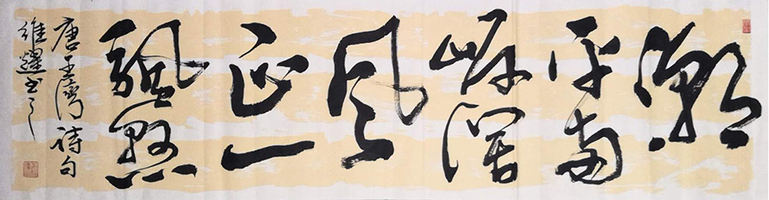 潮
平两
岸阔
风
正一
帆悬
唐王湾诗句
维 书之